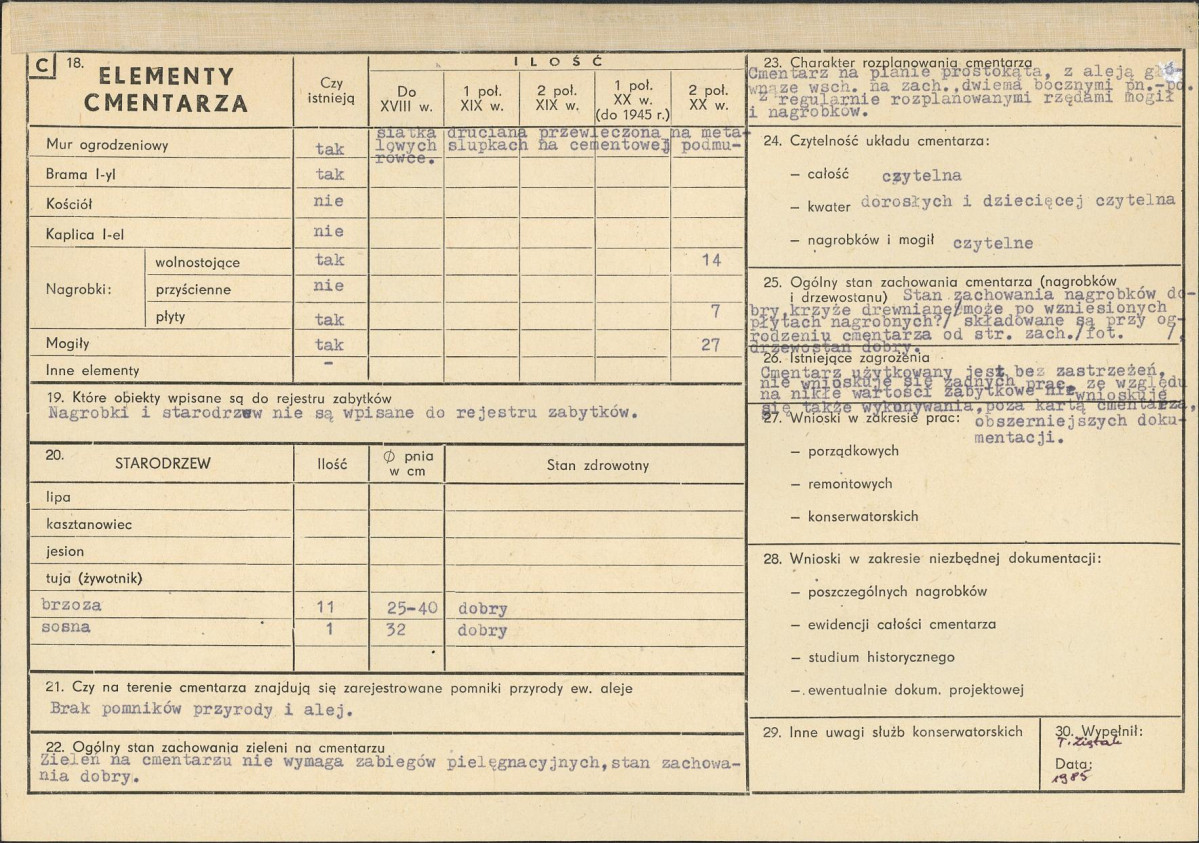 C 18. ELEMENTY CMENTARZA
Czy istnieją
I L O Ś Ć
Do XVIII w.
1 poł. XIX w.
2 poł. XIX w.
1 poł. XX w. (do 1945 r.)
2 poł. XX w.
Mur ogrodzeniowy tak siatka druciana przewleczona na meta-
lowych slupkach na cementowej podmu-
rówce.
Brama I-yl tak
Kościół nie
Kaplica I-el nie
Nagrobki:
wolnostojące tak 14
przyścienne nie
płyty tak 7
Mogiły tak 27
Inne elementy –
19. Które obiekty wpisane są do rejestru zabytków
Nagrobki i starodrzew nie są wpisane do rejestru zabytków.
20. STARODRZEW Ilość Ø pnia w cm Stan zdrowotny
lipa
kasztanowiec
jesion
tuja (żywotnik)
brzoza 11 25-40 dobry
sosna 1 32 dobry
21. Czy na terenie cmentarza znajdują się zarejestrowane pomniki przyrody ew. aleje
Brak pomników przyrody i alej.
22. Ogólny stan zachowania zieleni na cmentarzu
Zieleń na cmentarzu nie wymaga zabiegów pielęgnacyjnych,stan zachowa-
nia dobry.
23. Charakter rozplanowania cmentarza
Cmentarz na planie prostokąta, z aleją głó-
wną ze wsch. na zach.,dwiema bocznymi pn.-pd.
z regularnie rozplanowanymi rzędami mogił
i nagrobków.
24. Czytelność układu cmentarza:
– całość czytelna
– kwater dorosłych i dziecięcej czytelna
– nagrobków i mogił czytelne
25. Ogólny stan zachowania cmentarza (nagrobków
i drzewostanu) Stan zachowania nagrobków do-
bry,krzyże drewniane/może po wzniesionych
płytach nagrobnych?/ składowane są przy og-
rodzeniu cmentarza od str. zach./fot. /,
drzewostan dobry.
26. Istniejące zagrożenia
Cmentarz użytkowany jest bez zastrzeżeń,
nie wnioskuje się żadnych prac, ze względu
na nikłe wartości zabytkowe nie wnioskuje
się także wykonywania,poza kartą cmentarza,
27. Wnioski w zakresie prac: obszerniejszych doku-
mentacji.
– porządkowych
– remontowych
– konserwatorskich
28. Wnioski w zakresie niezbędnej dokumentacji:
– poszczególnych nagrobków
– ewidencji całości cmentarza
– studium historycznego
– ewentualnie dokum. projektowej
29. Inne uwagi służb konserwatorskich
30. Wypełnił:
Data:
1985